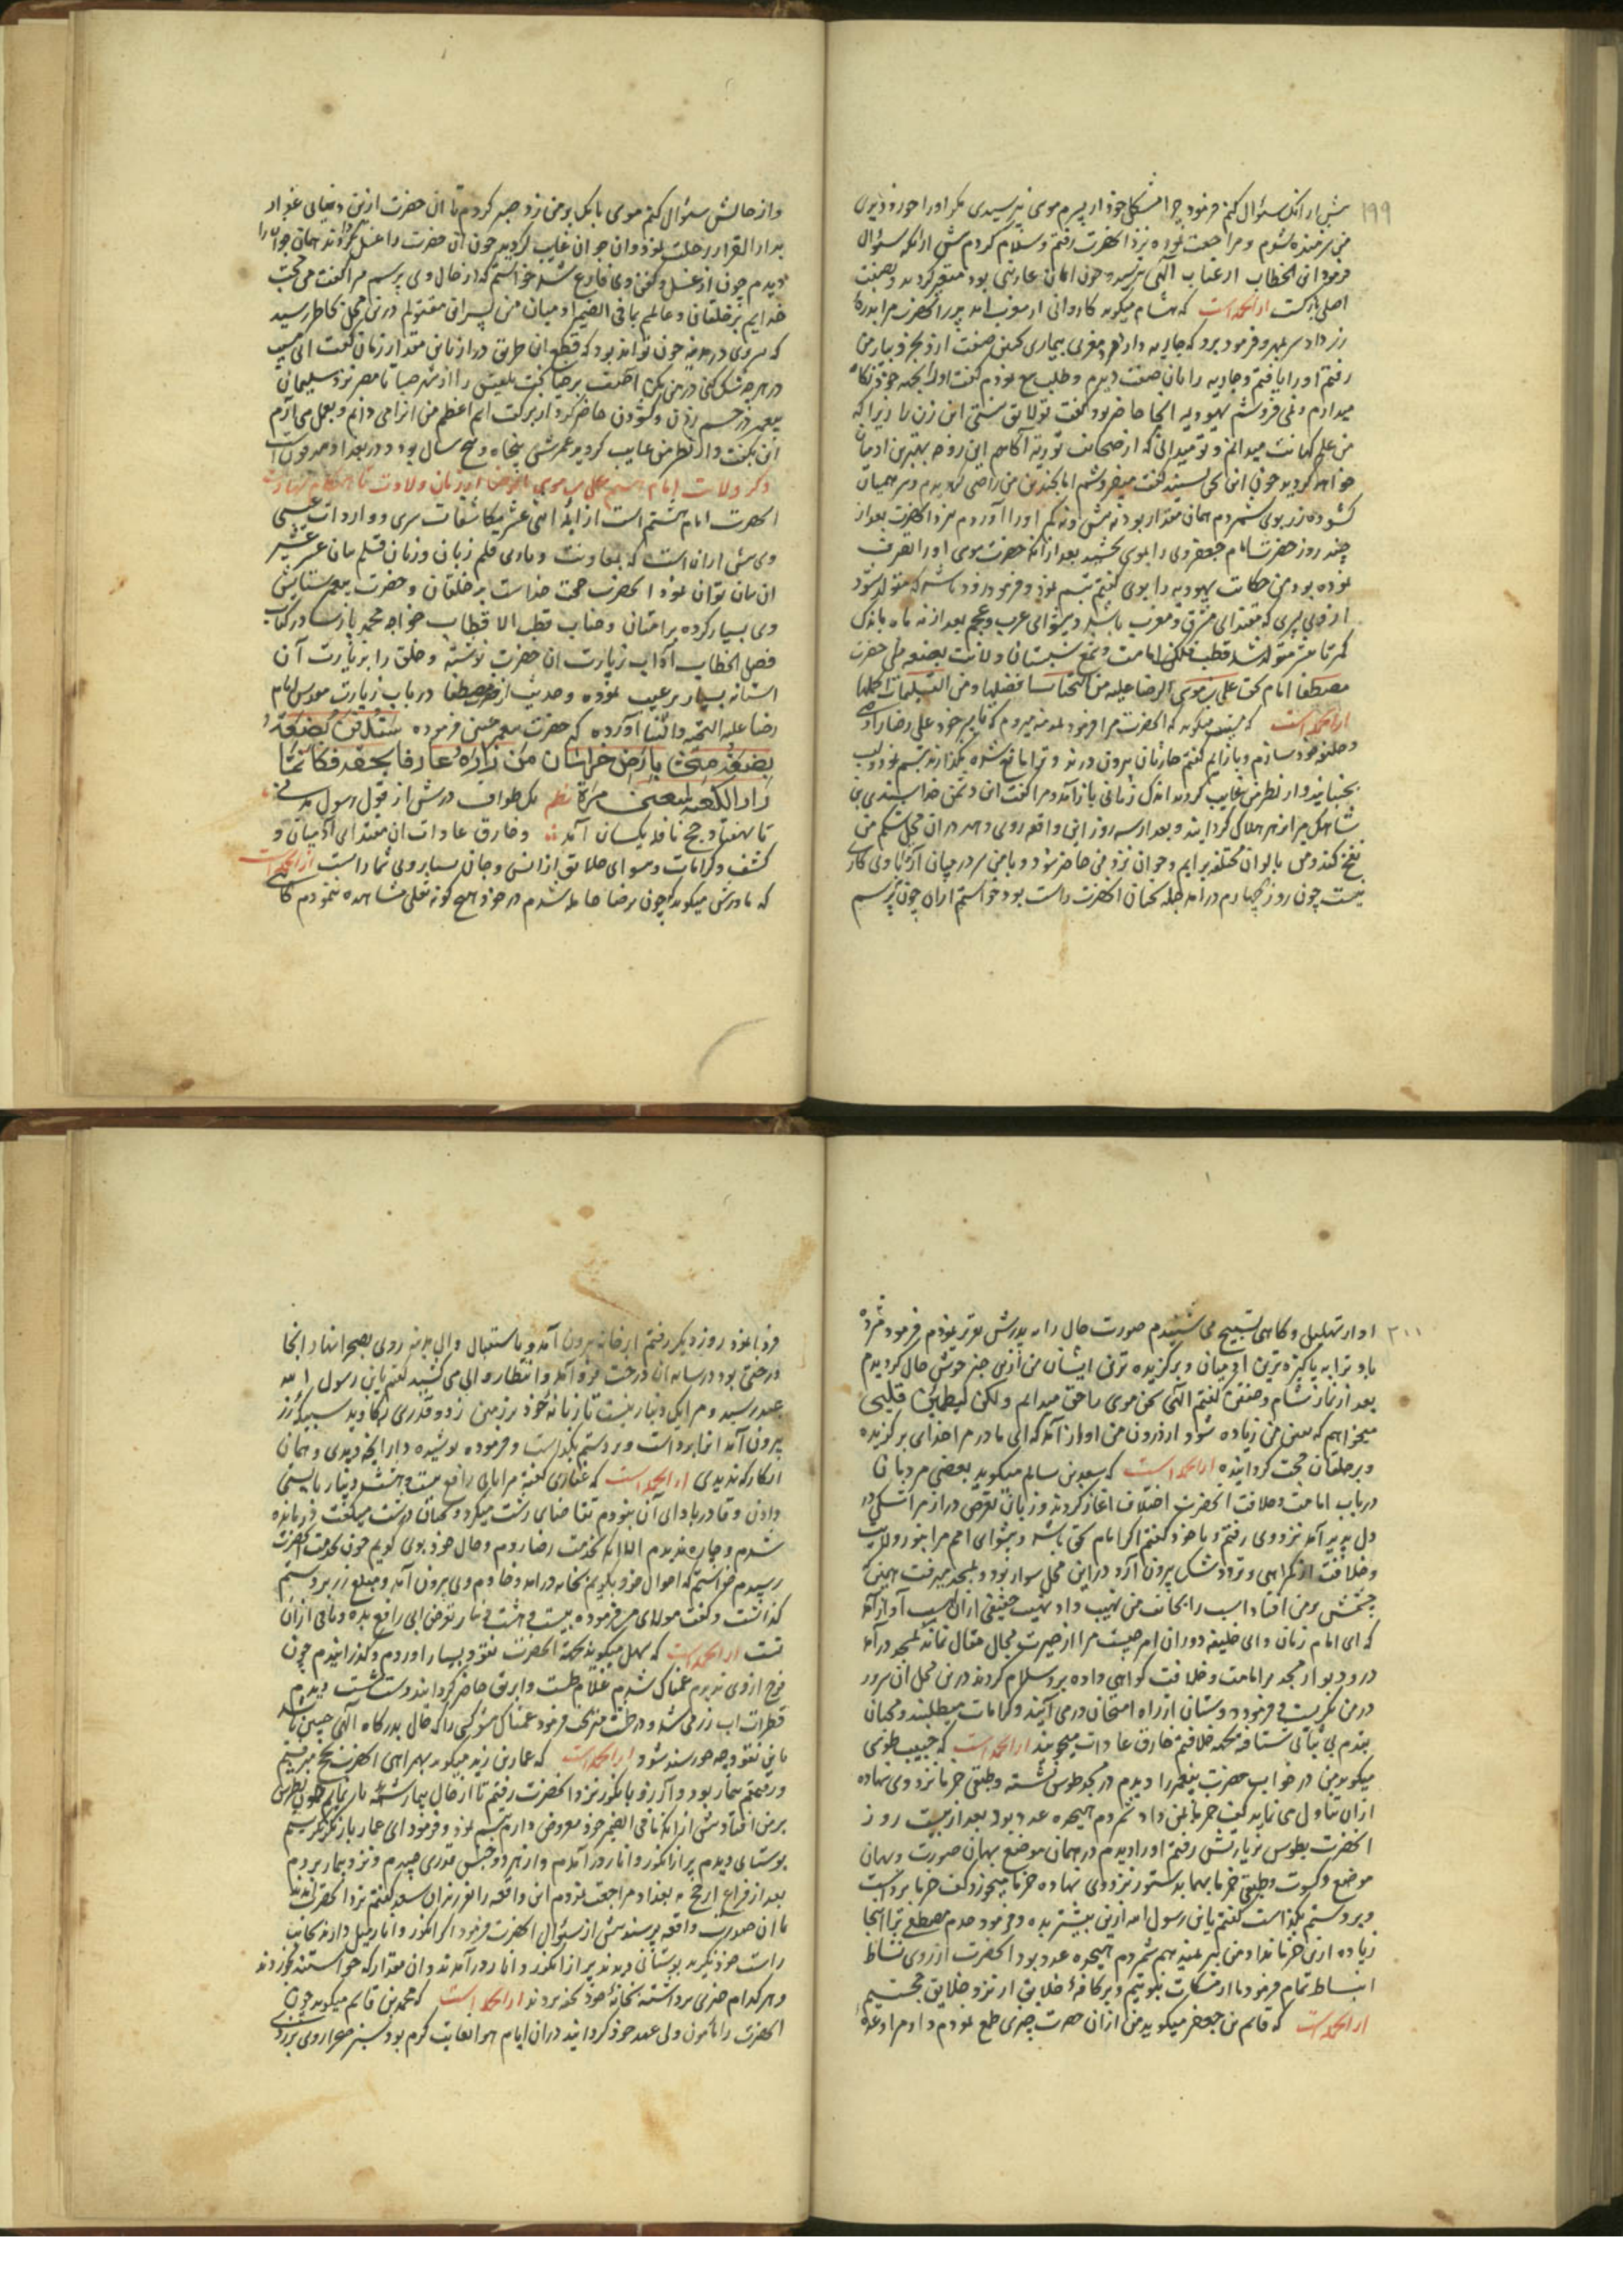 ۱۹۹
پیش از آنکه سؤال کنم فرمود چرا مشکل خود از پسرم موسی نپرسیدی مگر او را خورد دیدی
من شرمنده شوم و مراجعت نموده نزد آنحضرت رفتم و سلام کردم پیش از آنکه سؤال
فرمود ابن الخطاب از عتاب الهی نترسید چون ایمان عاریتی بود متغیر کردند و بصفت
اصلی بازگشت از آنجمله است که هشام میگوید کاروانی از مغرب آمد پدر آنحضرت مرا بدره
زر داد سر بمهر و فرمود برو که جاریه دارند مغربی بیماری کهن صفت او را بخر و بیار من
رفتم او را یافتم و جاریه را بآن صفت دیدم و طلب بیع نمودم گفت او را بجهه خود نگاه
میدارم و نمی فروشم یهودیه آنجا حاضر بود گفت تو لایق نیستی این زن را زیرا که
من علم کهانت میدانم و تو نمیدانی که از صحائف توریة آگاهم این زوجه بهترین آدمیان
خواهد گردید چون این سخن شنید گفت میفروشم اما بچندین من راضی گردیدم و سر همیان
گشوده زر بوی شمردم همان مقدار بود نه بیش و نه کم او را آوردم نزد آنحضرت بعد از
چند روز حضرت امام جعفر وی را بموسی بخشید بعد از آنکه حضرت موسی او را تصرف
نموده بود من حکایت یهودیه را بوی گفتم تبسم نمود و فرمود زود باشد که متولد شود
از وی پسری که مقتدای مشرق و مغرب باشد و پیشوای عرب و عجم بعد از نه ماه باندک
کمتر یا بیشتر متولد شد قطب فلک امامت و شمع شبستان ولایت بضعه نبی حضرت
مصطفی امام بحق علی بن موسی الرضا علیه من التحیات افضلها و من التسلیمات اکملها
از آنجمله است که مسیب میگوید که آنحضرت مرا فرمود بمدینه میروم که با پسر خود علی رضا را وصی
و خلیفه خود سازم و باز آیم گفتم حارسان بیرون درند و ترا مانع شده نگذارند تبسم نمود و لب
بجنبانید و از نظر من غایب گردید اندک زمانی باز آمد و مرا گفت این دشمن خدا سندی بن
شاهک مرا زهر هلاک گرداند و بعد از سه روز این واقعه روی دهد در آن محل شکم من
نفخ کند و من بالوان مختلفه برآیم و جوان نزد من حاضر شود و با من سر در میان آرد با وی کاری
نیست چون روز چهارم درآمد جمله سخنان آنحضرت راست بود خواستم از آن جوان پرسم
و از حالش سؤال کنم موسی بانک بر من زد صبر کردم تا آن حضرت ازین دنیای غدار
بدار القرار رحلت نمود و آن جوان غایب گردید چون آن حضرت را غسل میکردند همان جوان را
دیدم چون از غسل و کفن وی فارغ شد خواستم که از حال وی پرسم مرا گفت من حجت
خدایم بر خلقان و عالم بما فی الضمیر آدمیان من پسر آن مقتولم در آن محل بخاطر رسید
که پسر وی در مدینه چون تواند بود که قطع آن طریق دراز باین مقدار زمان گفت ای مسیب
در هر چه شک کنی درین شک مکن آصف برخیا تخت بلقیس را از شهر صبا تا مصر نزد سلیمان
پیغمبر در چشم زدن و گشودن حاضر کرد از برکت اسم اعظم من آنرا می دانم و بعمل می آرم
این بگفت و از نظر من غایب گردید عمرش پنجاه و پنج سال بود و در بغداد مدفونست
ذکر ولادت امام هشتم علی بن موسی الرضا از زمان ولادت تا هنگام شهادت
آنحضرت امام هشتم است از ایمه اثنی عشر مکاشفات سری و واردات غیبی
وی بیش از آن است که بمعاونت و یاری قلم زبان و زبان قلم بیان عشر عشیر
آن بیان توان نمود آنحضرت حجت خداست بر خلقان و حضرت پیغمبر ستایش
وی بسیار کرده بر امتان و جناب قطب الاقطاب خواجه محمد پارسا در کتاب
فصل الخطاب آداب زیارت آن حضرت نوشته و خلق را بر زیارت آن
آستانه بسیار ترغیب نموده و حدیث از حضرت مصطفا در باب زیارت موسی امام
رضا علیه التحیة والثنا آورده که حضرت پیغمبر چنین فرموده ستدفن بضعة
بضعة منی بارض خراسان من زاره عارفا بحقه فکانما
زار الکعبة سبعین مرة نظم یک طواف درش از قول رسول مدنی
تا بهفتاد حج نافله یکسان آمد و خارق عادات آن مقتدای آدمیان و
کشف و کرامات و پیشوای خلایق از انس و جان بسیار و بی شمار است از آنجمله است
که مادرش میگوید چون برضا حامله شدم در خود هیچ گونه ثقلی مشاهده ننمودم گاهی
۲۰۰
آواز تهلیل و گاهی تسبیح می شنیدم صورت حال را به پدرش تقریر نمودم فرمود مژده
باد ترا به پاکیزه ترین آدمیان و برگزیده ترین ایشان من ازین خبر خوش حال گردیدم
بعد از نماز شام و خفتن گفتم الهی سخن موسی را حق میدانم ولکن لیطمئن قلبی
میخواهم که یقین من زیاده شود از درون من آواز آمد که ای مادر مرا خدای برگزیده
و بر خلقان حجت گردانیده از آنجمله است که سعید بن سالم میگوید بعضی مردمان
در باب امامت و خلافت آنحضرت اختلاف آغاز کردند و زبان تعرض دراز مرا شکی در
دل پدید آمد نزد وی رفتم و با خود گفتم اگر امام بحق باشد و پیشوای امم مرا بنور ولایت
و خلافت از گمراهی و تردد و شک بیرون آرد درین محل سوار بود و بمسجد میرفت همین که
چشمش بر من افتاد اسب را بجانب من نهیب داد نهیب حقیقی از آن اسب آواز آمد
که ای امام زمان و ای خلیفه دوران امر چیست مرا از حیرت مجال مقال نماند بمسجد درآمد
در و دیوار مسجد بر امامت و خلافت گواهی داده بر وی سلام کردند درین محل آن سرور
در من نگریست و فرمود دوستان از راه امتحان درمی آیند و کرامات میطلبند و محبان
بقدم بی ثباتی شتافته بمحکمه خلافتم خارق عادات میجویند از آنجمله است که حبیب طوسی
میگوید من در خواب حضرت پیغمبر را دیدم در مسجد طوس نشسته و طبقی خرما نزد وی نهاده
از آن تناول می نماید کفی خرما بمن داد شمردم هیجده عدد بود بعد از بیست روز
آنحضرت بطوس بزیارتش رفتم او را دیدم در همان موضع بهمان صورت و بهمان
موضع و کسوت و طبقی خرما بهمان دستور نزد وی نهاده خرما میخورد کف خرما برداشت
و بر دستم بگذاشت گفتم یا ابن رسول الله ازین بیشتر بده فرمود جدم مصطفی ترا اینجا
زیاده ازین خرما نداد من نیز ندهم شمردم هیجده عدد بود آنحضرت از روی نشاط
انبساط تمام فرمود ما از مشکات نبوتیم و بر کافه خلایق از نزد خلایق حجتیم
از آنجمله است که قاسم بن جعفر میگوید من از آن حضرت چیزی طمع نمودم داد مرا وعده
فردا نمود روز دیگر رفتم از خانه بیرون آمد و باستقبال والی مدینه روی بصحرا نهاد و آنجا
درختی بود در سایه آن درخت فرو آمد و انتظار والی می کشید گفتم یا ابن رسول الله
عید رسید و مرا یک دینار نیست تازیانه خود بر زمین زد و قدری بکاوید سبیکه زر
بیرون آمد آنرا برداشت و بر دستم بگذاشت و فرمود پوشیده دار آنچه دیدی و همان
انگار که ندیدی از آنجمله است که غفاری گفته مرا بابی رافع بیست و هشت دینار بایستی
دادن و قادر باداء آن نبودم تقاضای زشت میکرد و سخنان درشت میگفت فرومانده
شدم و چاره ندیدم الا آنکه بخدمت رضا روم و حال خود بوی گویم چون بخدمت آنحضرت
رسیدم خواستم که احوال خود بگویم بخانه درآمد و خادم وی بیرون آمد و مبلغ زر بر دستم
گذاشت و گفت مولای من فرموده بیست و هشت دینار بقرض ابی رافع بده و باقی از آن
تست از آنجمله است که سهل میگوید بجهة آنحضرت نقود بسیار آوردم و گذرانیدم چون
فرح از وی ندیدم غمناک شدم غلام طشت و ابریق حاضر گردانید دست شست دیدم
قطرات آب زر می شد و در طشت میریخت فرمود غمناک مشو کسی را که حال بدرگاه الهی چنین باشد
باین نقود چه خورسند شود از آنجمله است که عمار بن زید میگوید بهمراهی آنحضرت بحج میرفتیم
و رفیقم بیمار بود و آرزو بانگور نزد آنحضرت رفتم تا از حال بیمار شمه باز نمایم چون نظرش
بر من افتاد پیش از آنکه ما فی الضمیر خود معروض دارم تبسم نمود و فرمود ای عمار باز نگر نگریستم
بوستانی دیدم پر از انگور و انار درآمدم و از هر دو جنس قدری چیدم و نزد بیمار بردم
بعد از فراغ از حج به بغداد مراجعت نمودم این واقعه را نفر زبان سعد گفتم نزد آنحضرت آمدند
تا آن صورت واقعه پرسند پیش از سؤال آنحضرت فرمود اگر انگور و انار میل دارند بجانب
راست خود نگرید بوستانی دیدند پر از انگور و انار درآمدند و آن مقدار که خواستند خوردند
و هر کدام چیزی برداشته بخانه خود تحفه بردند از آنجمله است که محمد بن قاسم میگوید چون
آنحضرت را مامون ولی عهد خود گردانید در آن ایام هوا بغایت گرم بود